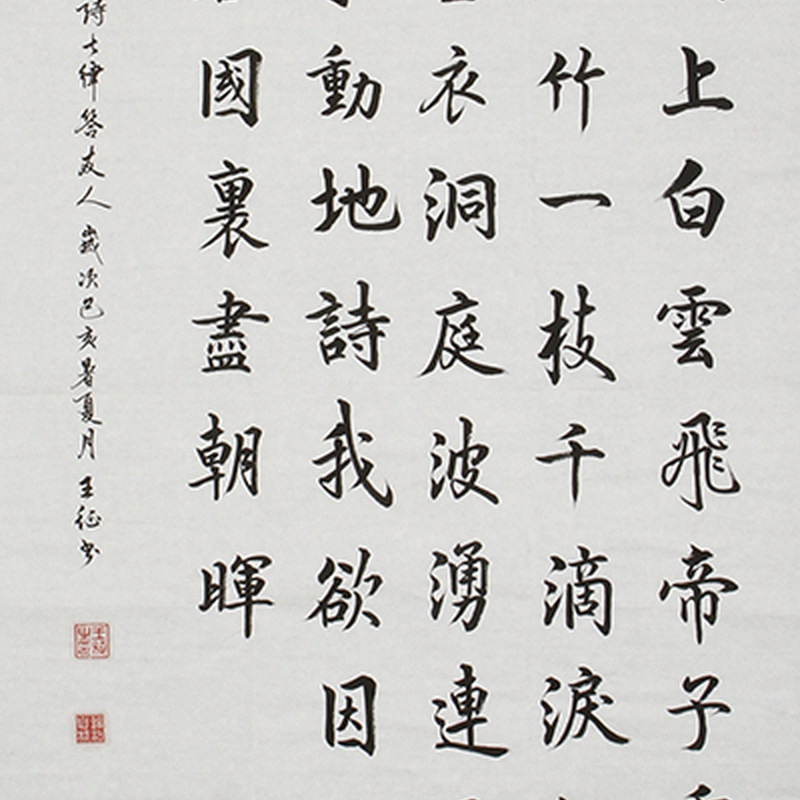 上白雲飛帝子
竹一枝千滴淚
衣洞庭波湧連
動地詩我欲因
國裏盡朝暉
詩七律答友人歲次己亥年夏月王征書